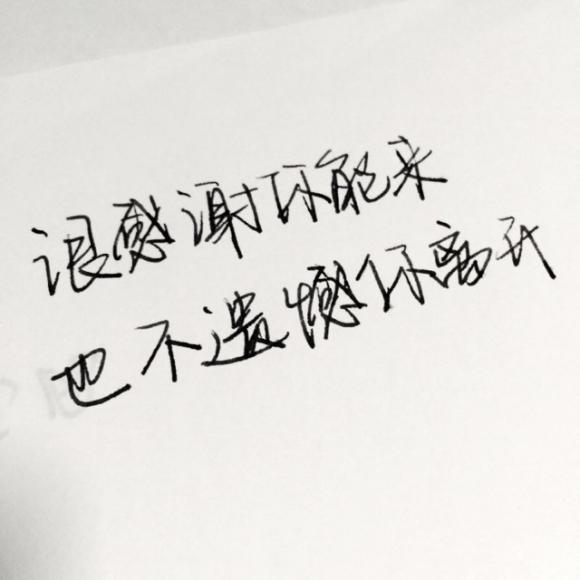 很感谢你能来
也不遗憾你离开